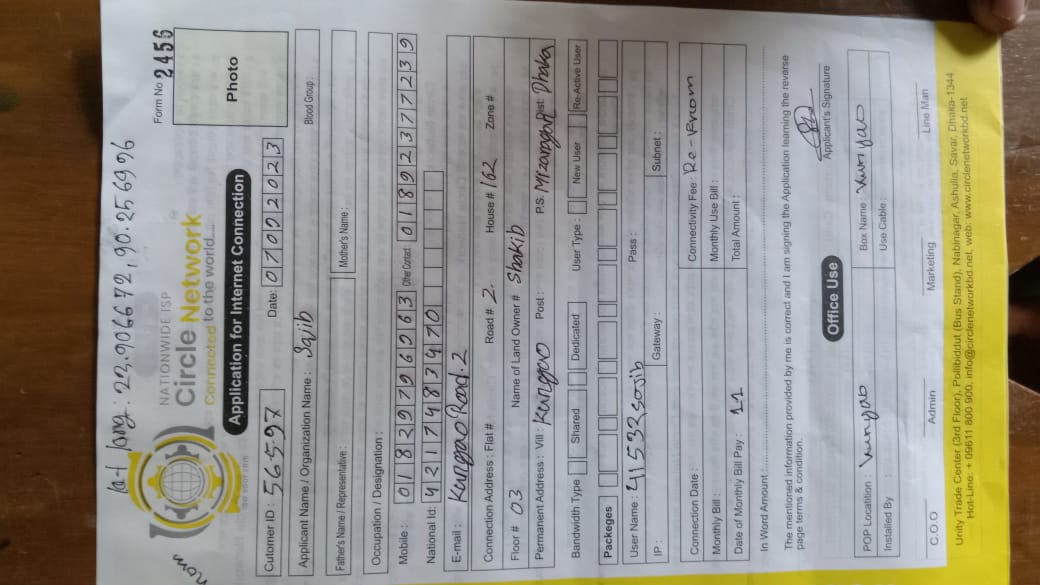 lat long : 23.906672, 90.256996
now
NATIONWIDE ISP
Circle Network
Connected to the world....
Form No 2456
Application for Internet Connection
Photo
Cutomer ID : 56597 Date: 07092023
Applicant Name / Organization Name : Sajib Blood Group :
Father's Name / Representative : Mother's Name :
Occupation / Designation :
Mobile : 01829796963 Other Contact 01892377239
National Id : 4217483470
E-mail :
Connection Address : Flat # Road # 2. House # 162 Zone #
Floor # 03 Name of Land Owner # Shakib
Permanent Address : Vill : Post : P.S. Dist: Dhaka
Bandwidth Type Shared Dedicated User Type : New User Re-Active User
Packeges
User Name : 41532sajib Pass :
IP : Gateway : Subnet :
Connection Date : Connectivity Fee :
Monthly Bill : Monthly Use Bill :
Date of Monthly Bill Pay : 11 Total Amount :
In Word Amount :
The mentioned information provided by me is correct and I am signing the Application learning the reverse
page terms & condition.
Applicant's Signature
Office Use
POP Locatition : Box Name :
Installed By : Use Cable :
C.O.O Admin Marketing Line Man
Unity Trade Center (3rd Floor), Pollibiddut (Bus Stand), Nabinagar, Ashulia, Savar, Dhaka-1344
Hot-Line: + 09611 800 900, info@circlenetworkbd.net, web: www.circlenetworkbd.net